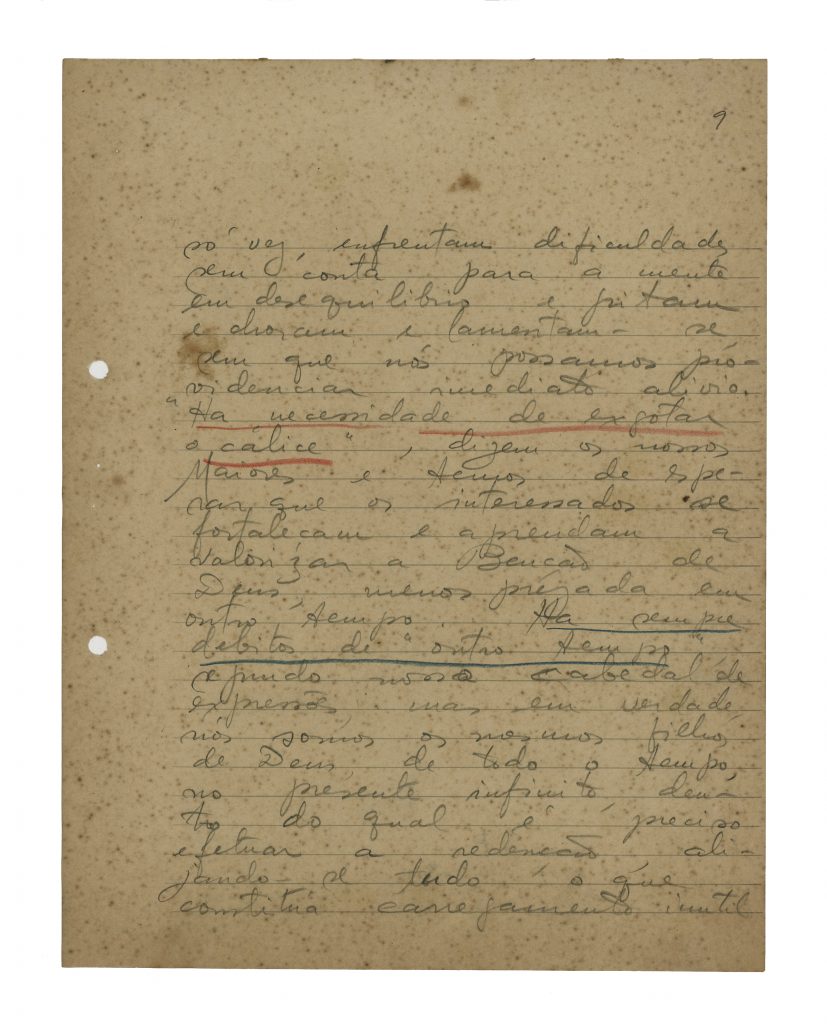 9
só vez, enfrentam dificuldades
sem conta para a mente
em desequilibrio e gritam
e choram e lamentam-se
sem que nós possamos pro-
videnciar imediato alivio.
"Ha necessidade de exgotar
o cálice", dizem os nossos
Maiores e temos de espe-
rar que os interessados se
fortalecam e aprendam a
valorizar a Bencão de
Deus, menosprezada em
outro tempo. Ha sempre
debitos de "outro tempo"
segundo nosso cabedal de
expressões mas em verdade
nós somos os mesmos filhos
de Deus de todo o tempo,
no presente infinito, den-
tro do qual é preciso
efetuar a redencão ali-
jando-se tudo o que
constitua carregamento inutil